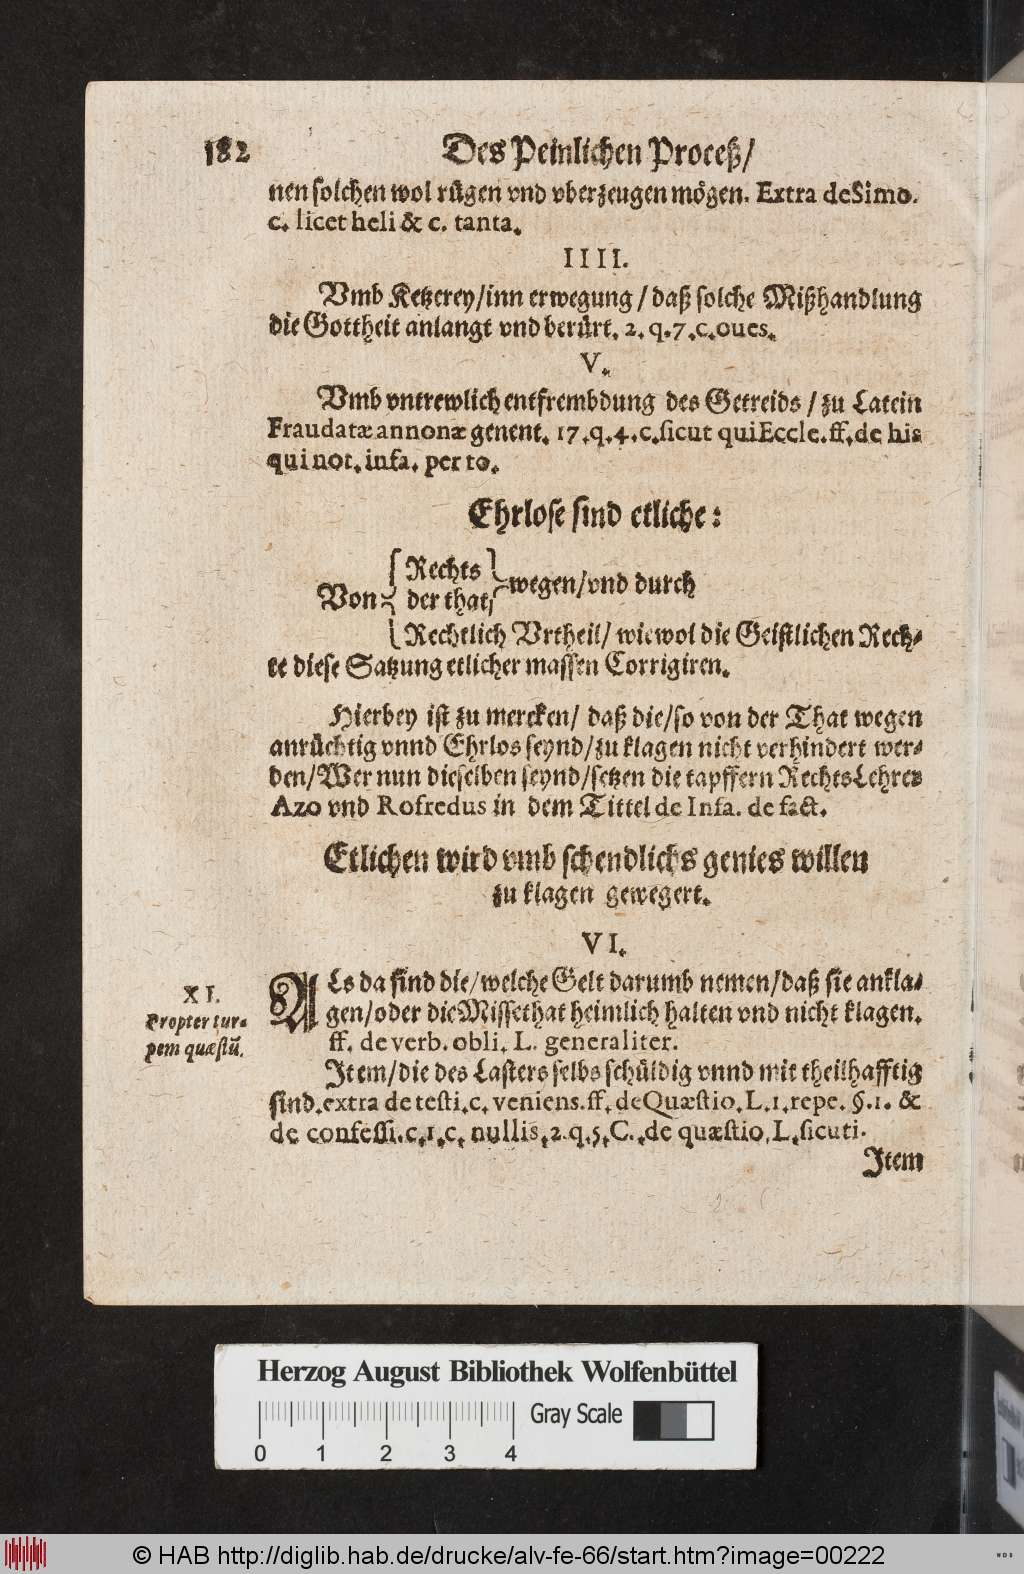 182
Des Peinlichen Proceß/
nen solchen wol rügen vnd vberzeugen mögen. Extra de Simo.
c. licet heli & c. tanta.
IIII.
Vmb Ketzerey/inn erwegung / daß solche Mißhandlung
die Gottheit anlangt vnd berürt. 2. q. 7. c. oues.
V.
Vmb vntrewlich entfrembdung des Getreids / zu Latein
Fraudatæ annonæ genent. 17. q. 4. c. sicut qui Eccle. ff. de his
qui not. infa. per to.
Ehrlose sind etliche:
Rechts
Von der that wegen/vnd durch
Rechtlich Vrtheil/ wiewol die Geistlichen Rech-
te diese Satzung etlicher massen Corrigiren.
Hierbey ist zu mercken/ daß die/so von der That wegen
anrüchtig vnnd Ehrlos seynd/zu klagen nicht verhindert wer-
den/Wer nun dieselben seynd/setzen die tapffern Rechts Lehrer
Azo vnd Rofredus in dem Tittel de Infa. de fact.
Etlichen wird vmb schendlichs genies willen
zu klagen gewegert.
VI.
XI.
Propter tur-
pem quæstũ.
ALs da sind die/welche Gelt darumb nemen/daß sie ankla-
gen/oder die Missethat heimlich halten vnd nicht klagen.
ff. de verb. obli. L. generaliter.
Item/die des Lasters selbs schüldig vnnd mit theilhafftig
sind. extra de testi. c. veniens. ff. de Quæstio. L. 1. repe. §. 1. &
de confessi. c. 1. c. nullis. 2. q. 5. C. de quæstio. L. sicuti.
Item
Herzog August Bibliothek Wolfenbüttel
Gray Scale
0 1 2 3 4
© HAB http://diglib.hab.de/drucke/alv-fe-66/start.htm?image=00222